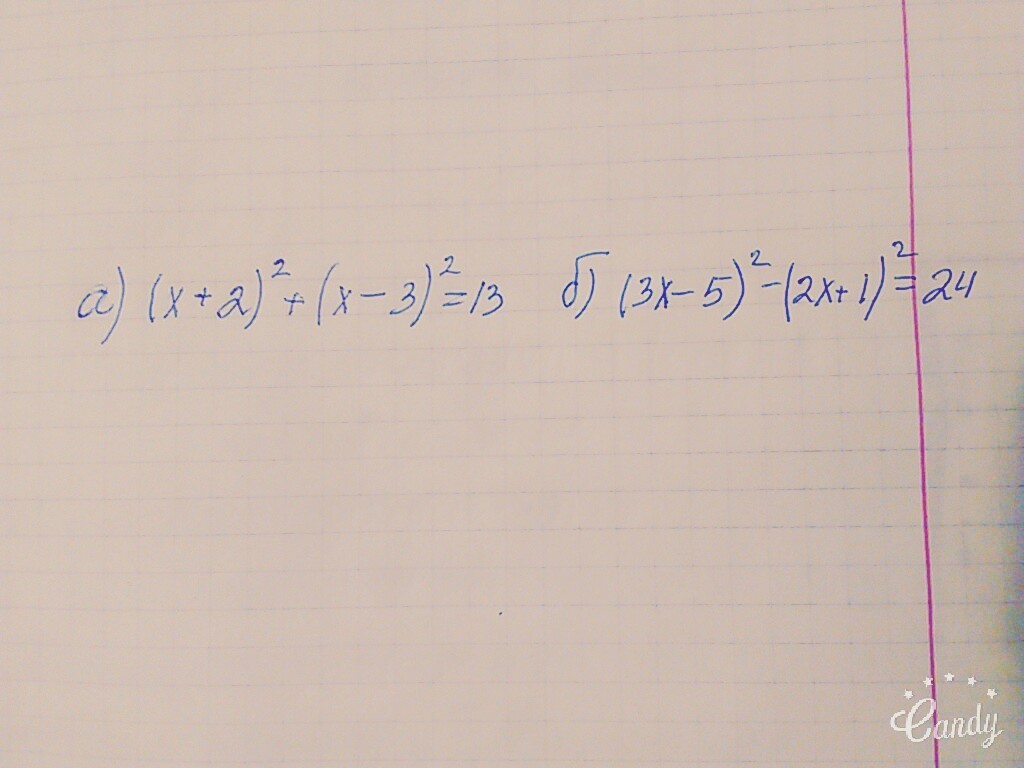 а) (x+2)²+(x-3)²=13 б) (3x-5)²-(2x+1)²=24
Candy